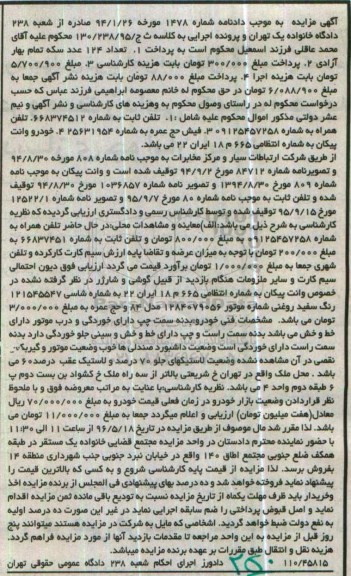 آگهی مزایده به موجب دادنامه شماره ۱۴۷۸ مورخه ۹۴/۱/۲۶ صادره از شعبه ۲۳۸
دادگاه خانواده یک تهران و پرونده اجرایی به کلاسه ث ج/۱۳۰/۲۳۸/۹۵ محکوم علیه آقای
محمد عاقلی فرزند اسمعیل محکوم است به پرداخت ۱. تعداد ۱۲۴ عدد سکه تمام بهار
آزادی ۲. پرداخت مبلغ ۳۰۰/۰۰۰ تومان بابت هزینه کارشناسی ۳. مبلغ ۵/۷۰۰/۹۰۰
تومان بابت هزینه اجرا ۴. پرداخت مبلغ ۸۸/۰۰۰ تومان بابت هزینه نشر آگهی جمعا به
مبلغ ۶/۰۸۸/۹۰۰ تومان در حق محکوم له خانم معصومه ابراهیمی فرزند عباس که حسب
درخواست محکوم له در راستای وصول محکوم به وهزینه های کارشناسی و نشر آگهی و نیم
عشر دولتی مذکور اموال محکوم علیه شامل :۱. تلفن ثابت به شماره ۶۶۸۳۷۴۵۱۲. تلفن
همراه به شماره ۰۹۱۲۵۴۵۷۲۵۸ ۳. فیش حج عمره به شماره ۲۵۶۳۱۹۵۴ ۴. خودرو وانت
پیکان به شماره انتظامی ۶۶۵ م ۱۸ ایران ۲۲ می باشد.
از طریق شرکت ارتباطات سیار و مرکز مخابرات به موجب نامه شماره ۸۰۸ مورخه ۹۴/۸/۳۰
و تصویرنامه شماره ۸۴۷۱۲ مورخ ۹۴/۹/۲ توقیف شده است و وانت پیکان به موجب نامه
شماره ۸۰۹ مورخ ۱۳۹۴/۸/۳۰ و تصویر نامه شماره ۱۰۳۶۸۵۷ مورخ ۹۴/۸/۳۰ توقیف
شده و تلفن ثابت به موجب نامه شماره ۸۰ مورخ ۹۵/۹/۷ و تصویر نامه شماره ۱۲۵۲۲/۱
مورخ ۹۵/۹/۱۵ توقیف شده و توسط کارشناس رسمی و دادگستری ارزیابی گردیده که نظریه
کارشناسی به شرح ذیل می باشد:الف)معاینه و مشاهدات محلی:در حال حاضر تلفن همراه به
شماره ۰۹۱۲۵۴۵۷۲۵۸ به مبلغ ۸۰۰/۰۰۰ تومان و تلفن ثابت به شماره ۶۶۸۳۷۴۵۱ به
مبلغ ۲۰۰/۰۰۰ تومان با توجه به میزان عرضه و تقاضا پایه ارزش سیم کارت کارکرده و تلفن
شهری جمعا به مبلغ ۱/۰۰۰/۰۰۰ تومان برآورد قیمت می گردد ارزیابی فوق دیون احتمالی
سیم کارت و سایر ملزومات هنگام بازدید از قبیل گوشی و شارژر در نظر گرفته نشده در
خصوص وانت پیکان به شماره انتظامی ۶۶۵ م ۱۸ ایران ۲۲ به شماره شاسی ۱۲۱۴۵۵۴۷
رنگ سفید روغنی شماره موتور ۱۲۸۴۰۷۹۰۵۶ مدل ۸۴ و حج عمره به مبلغ ۳/۰۰۰/۰۰۰
تومان می باشد. مشخصات فنی خودرو:بدنه سمت چپ دارای خوردگی و درب موتور دارای
خط و خش می باشد بدنه سمت راست و چپ دارای خط و خش و سینی جلو خوردگی دارد بدنه
سمت راست دارای خوردگی است وضعیت داشبورد صندلی ها خوب وضعیت موتور و گیربکس
نقصی در آن مشاهده نشده وضعیت لاستیکهای جلو ۷۰ درصد و لاستیک عقب ۶۰درصد می
باشد. محل ملک واقع در تهران خ شریعتی بالاتر از سه راه ملک خ کشواد بن بست دوم پ
۶ طبقه دوم واحد ۴ می باشد. نظریه کارشناسی:با عنایت به مراتب معروضه فوق و با ملحوظ
نظر قراردادن وضعیت بازار خودرو در زمان فعلی قیمت خودرو به مبلغ ۷۰/۰۰۰/۰۰۰ ریال
معادل(هفت میلیون تومان) ارزیابی و اعلام میگردد جمعا به مبلغ ۱۱/۰۰۰/۰۰۰ تومان می
باشد. لذا مقرر شد مال موصوف از طریق مزایده در تاریخ ۹۶/۵/۱۸ از ساعت ۱۱ الی ۱۱:۳۰
با حضور نماینده محترم دادستان در واحد مزایده مجتمع قضایی خانواده یک مستقر در طبقه
همکف ضلع جنوبی مجتمع اطاق ۱۴۰ واقع در خیابان نبرد جنوبی جنب شهرداری منطقه ۱۴
بفروش برسد. لذا مزایده از قیمت پایه کارشناسی شروع و به کسی که بالاترین قیمت را
پیشنهاد نماید فروخته خواهد شد و ده درصد بهای پیشنهادی فی المجلس از برنده مزایده اخذ
وخریدار باید ظرف مهلت یکماه از تاریخ مزایده نسبت به تودیع باقی مانده ثمن مزایده اقدام
نماید و اصل قبوض پرداختی را ضم سابقه اجرایی نماید در غیر این صورت ده درصد اولیه
به نفع دولت ضبط خواهد گردید. اشخاصی که مایل به شرکت در مزایده هستند میتوانند پنج
روز قبل از مزایده به این واحد مراجعه تا مقدمات بازدید آنها از مورد مزایده فراهم گردد.
هزینه نقل و انتقال طبق مقررات بر عهده برنده مزایده میباشد.
۱۱۰/۴۵۸۱۵ دادورز اجرای احکام شعبه ۲۳۸ دادگاه عمومی حقوقی تهران